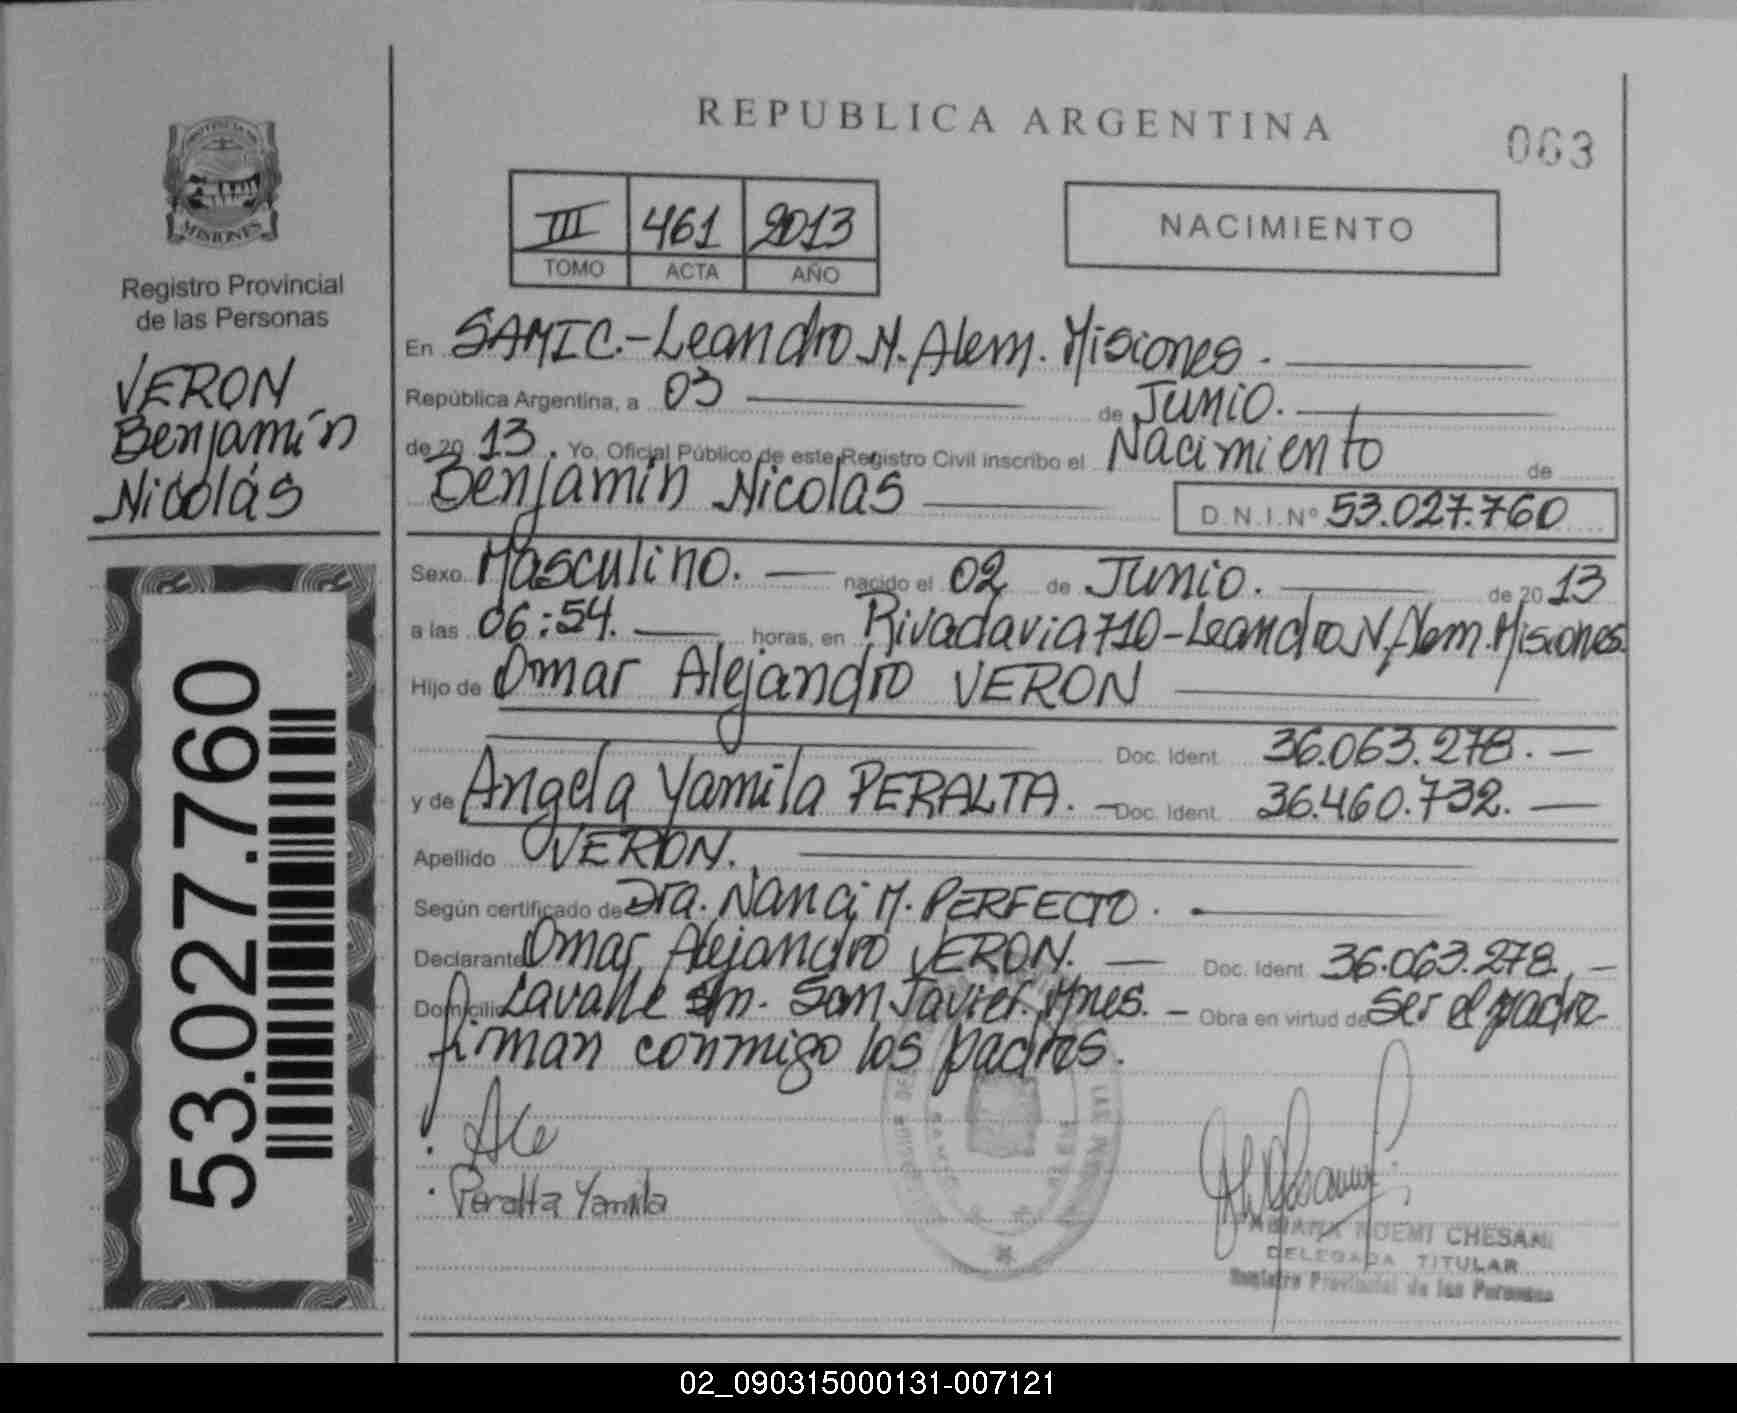 REPUBLICA ARGENTINA
063
III 461 2013
TOMO ACTA AÑO
NACIMIENTO
MISIONES
Registro Provincial
de las Personas
VERON
Benjamín
Nicolás
53.027.760
En SAMIC.-Leandro N. Alem. Misiones.
República Argentina, a 03 de Junio.
de 20 13. Yo, Oficial Público de este Registro Civil inscribo el Nacimiento de
Benjamín Nicolás D.N.I.Nº 53.027.760
Sexo Masculino. nacido el 02 de Junio. de 20 13
a las 06:54. horas, en Rivadavia 710-Leandro N. Alem. Misiones.
Hijo de Omar Alejandro VERON
Doc. Ident. 36.063.278.
y de Angela Yamila PERALTA. Doc. Ident. 36.460.732.
Apellido VERON.
Según certificado de Dra. Nanci M. PERFECTO.
Declarante Omar Alejandro VERON. Doc. Ident. 36.063.278.
Domicilio Lavalle s/n. San Javier. Mnes. - Obra en virtud de Ser el padre
firman conmigo los padres.
Ale
Peralta Yamila
NOEMI CHESANI
DELEGADA TITULAR
Registro Provincial de las Personas
02_090315000131-007121